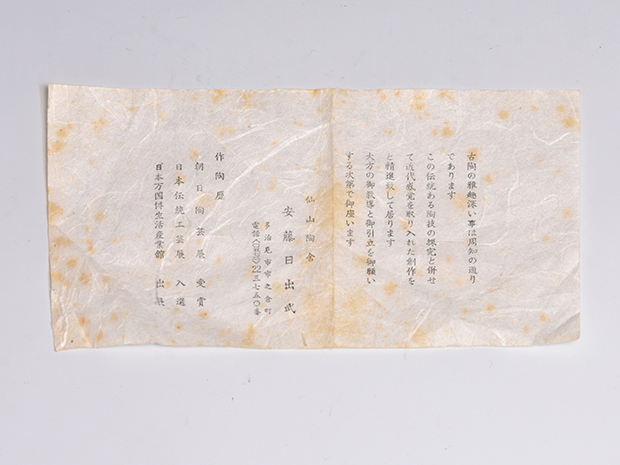 古陶の雅趣深い事は周知の通り
であります
この伝統ある陶技の探究と併せ
て近代感覚を取り入れた創作を
と精進致して居ります
大方の御教導と御引立を御願い
する次第で御座います
仙山陶舎
安藤日出武
多治見市市之倉町
電話 22 三七五〇番
作陶歴
朝日陶芸展 受賞
日本伝統工芸展 入選
日本万国博生活産業館 出展